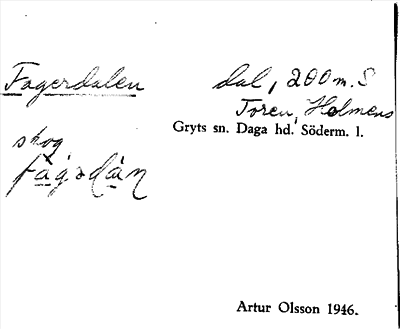 Fagerdalen dal, 200 m. S
Toren, Holmens
Gryts sn. Daga hd. Söderm. l.
skog
Artur Olsson 1946.